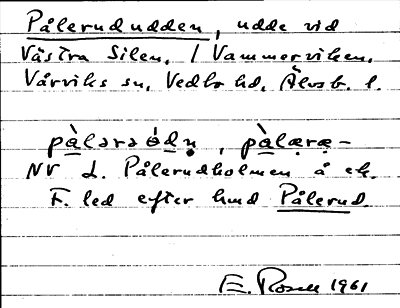 Pålerududden, udde vid
Västra Silen, i Vammerviken,
Vårviks sn, Vedbo hd, Älvsb. l.
pàlərəódn, pàlæræ-
NV d. Pålerudholmen å ek.
F. led efter hmd Pålerud.
E. Rosell 1961